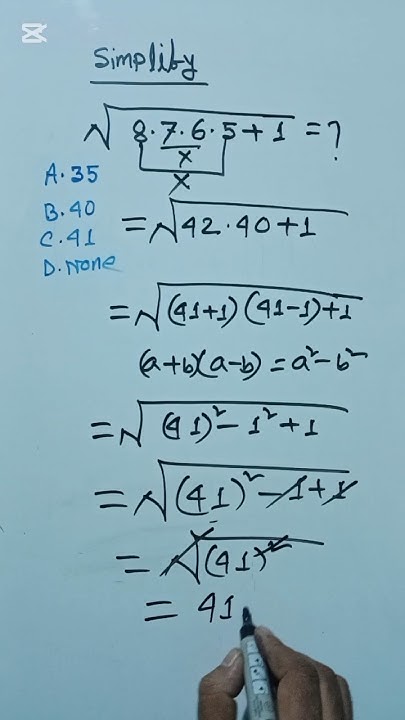 Simplify
√8·7·6·5+1 = ?
x
x
A. 35
B. 40
C. 41
D. None
= √42·40+1
= √(41+1)(41-1)+1
(a+b)(a-b) = a²-b²
= √(41)²-1²+1
= √(41)²-1+1
= √(41)²
= 41